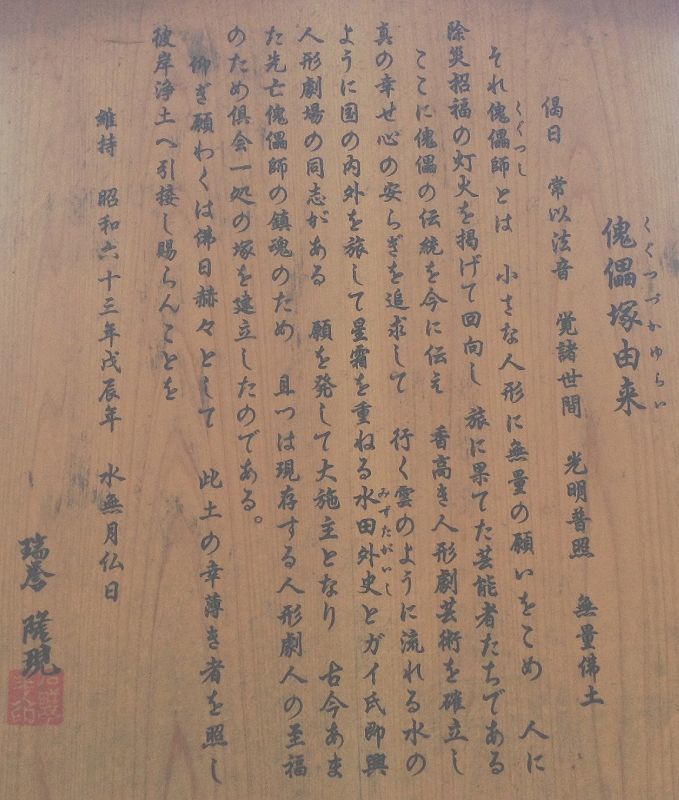 傀儡塚由来
くぐつづかゆらい
偈曰　常以法音　覚諸世間　光明普照　無量佛土
それ傀儡師とは　小さな人形に無量の願いをこめ　人に
くぐつし
除災招福の灯火を掲げて回向し　旅に果てた芸能者たちである
ここに傀儡の伝統を今に伝え　香高き人形劇芸術を確立し
真の幸せ心の安らぎを追求して　行く雲のように流れる水の
ように国の内外を旅して星霜を重ねる水田外史とガイ氏即興
みずたがいし
人形劇場の同志がある　願を発して大施主となり　古今あま
た先亡傀儡師の鎮魂のため　且つは現存する人形劇人の至福
のため倶会一処の塚を建立したのである。
仰ぎ願わくは佛日赫々として　此土の幸薄き者を照し
彼岸浄土へ引接し賜らんことを
維持　昭和六十三年戊辰年　水無月仏日
瑞誉　隆現